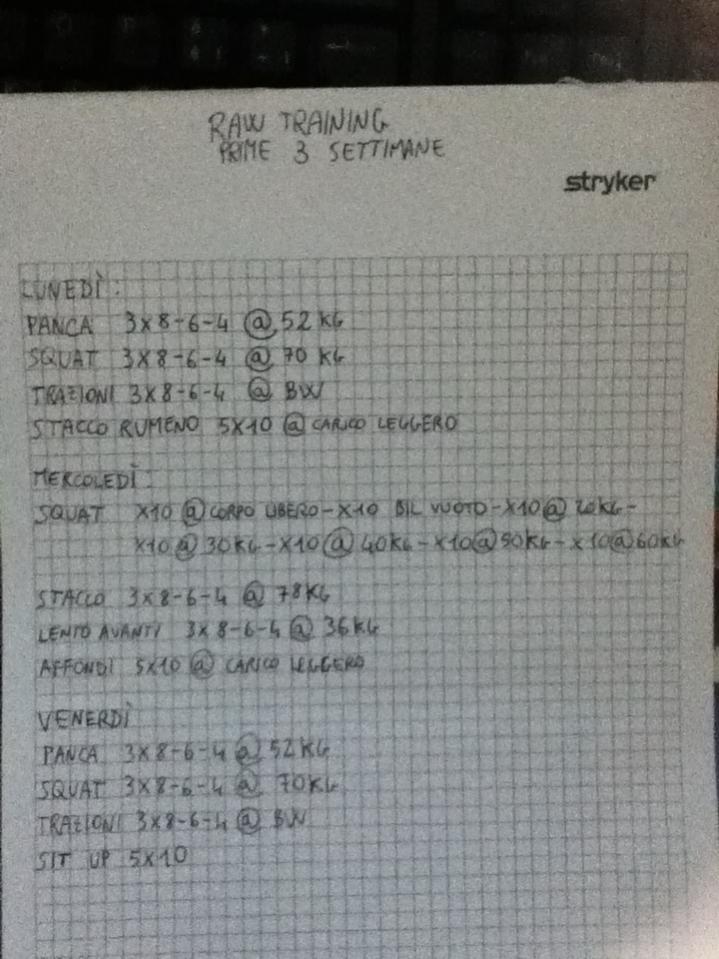 RAW TRAINING
PRIME 3 SETTIMANE
stryker
LUNEDÌ:
PANCA 3x8-6-4 @ 52 KG
SQUAT 3x8-6-4 @ 70 KG
TRAZIONI 3x8-6-4 @ BW
STACCO RUMENO 5x10 @ CARICO LEGGERO
MERCOLEDÌ:
SQUAT x10 @ CORPO LIBERO-x10 BIL VUOTO-x10@ 20KG-
x10@ 30KG-x10@ 40KG-x10@50KG-x10@60KG
STACCO 3x8-6-4 @ 78KG
LENTO AVANTI 3x8-6-4 @ 36KG
AFFONDI 5x10 @ CARICO LEGGERO
VENERDÌ
PANCA 3x8-6-4 @ 52KG
SQUAT 3x8-6-4 @ 70KG
TRAZIONI 3x8-6-4 @ BW
SIT UP 5x10